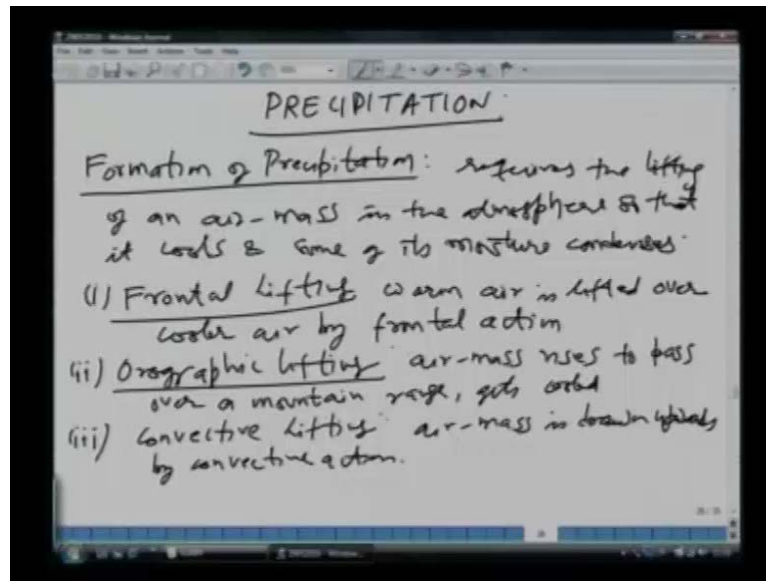 PRECIPITATION
Formation of Precipitation: requires the lifting
of an air-mass in the atmosphere so that
it cools & some of its moisture condenses.
(i) Frontal Lifting warm air is lifted over
cooler air by frontal action
(ii) Orographic lifting air-mass rises to pass
over a mountain range, gets cooled
(iii) Convective Lifting air-mass is drawn upwards
by convective action.